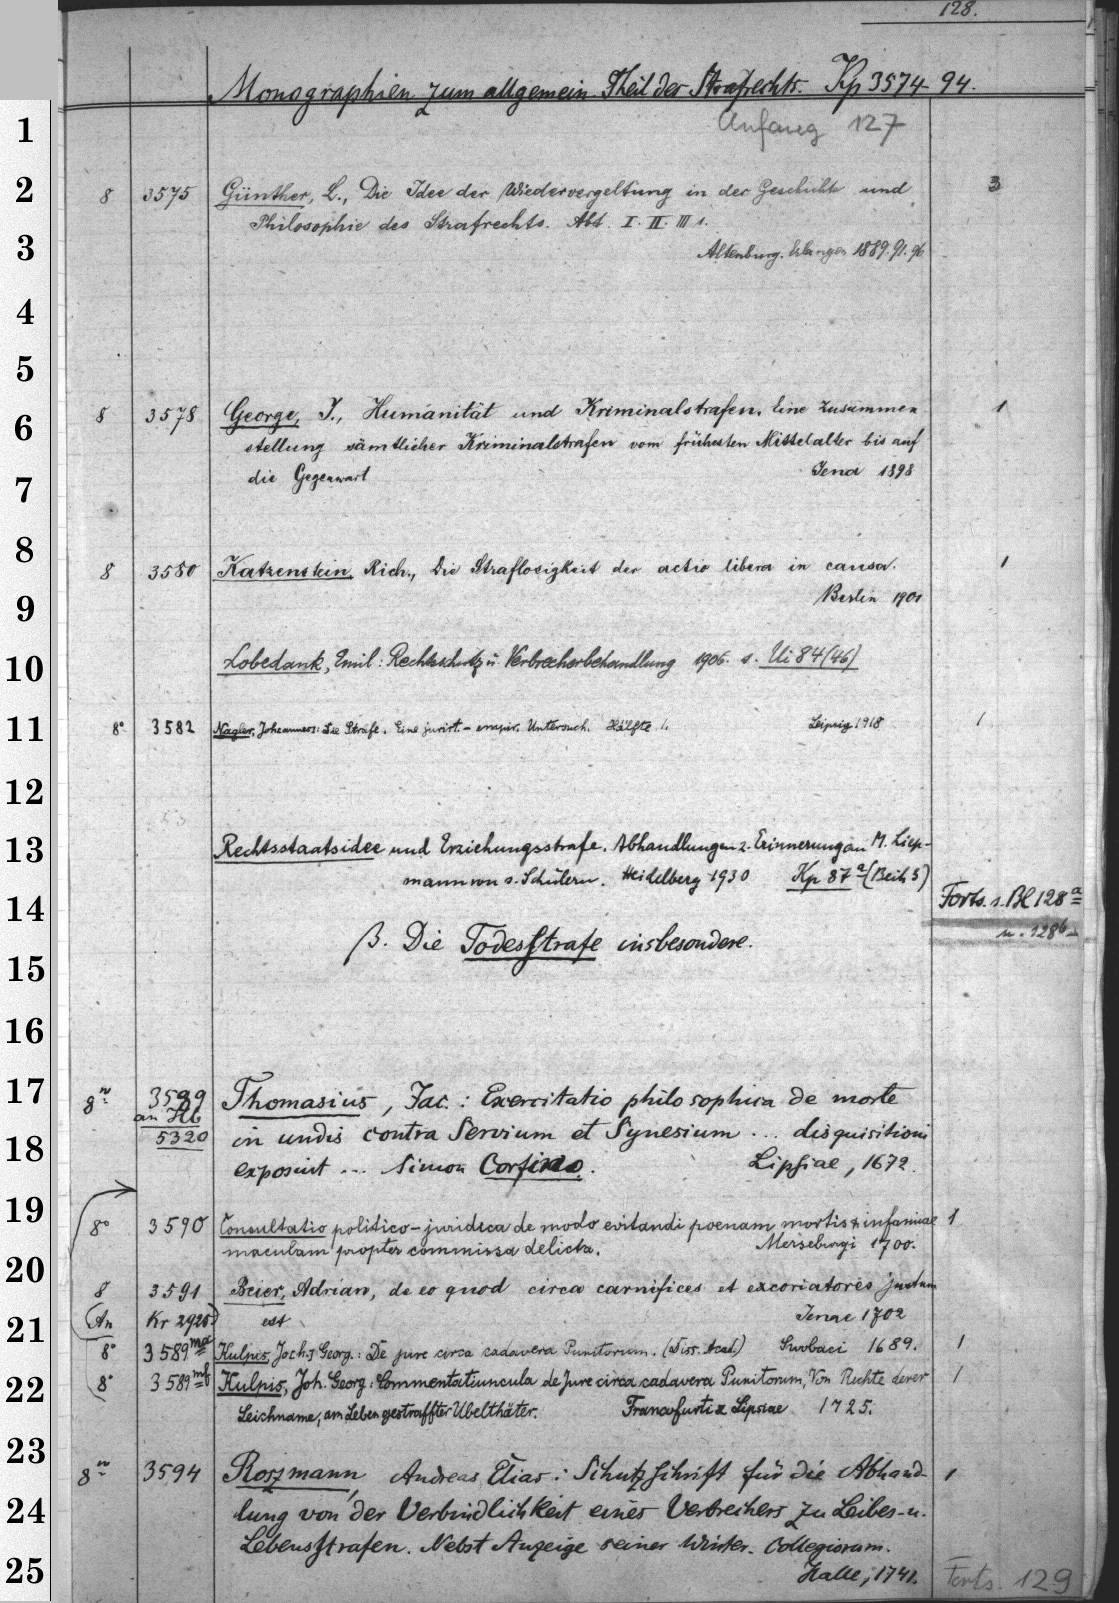 128.
Monographien zum allgemein. Theil des Strafrechts. Kp 3574-94.
1
Anfang 127
2 8 3575 Günther, L., Die Idee der Wiedervergeltung in der Geschichte und 3
Philosophie des Strafrechts. Abt. I. II. III 1.
3 Altenburg. Erlangen 1889. 91. 96
4
5
6 8 3578 George, J., Humanität und Kriminalstrafen. Eine Zusammen 1
stellung sämtlicher Kriminalstrafen vom frühesten Mittelalter bis auf
7 die Gegenwart Jena 1898
8 8 3580 Katzenstein, Rich., Die Straflosigkeit der actio libera in causa. 1
9 Berlin 1901
10 Lobedank, Emil: Rechtsschutz u. Verbrecherbehandlung 1906. s. Ui 84 (46)
11 8° 3582 Nagler, Johannes: Die Strafe. Eine jurist.-empir. Untersuch. Hälfte 1. Leipzig 1918 1
12
13 Rechtsstaatsidee und Erziehungsstrafe. Abhandlungen z. Erinnerung an M. Liep-
mann von s. Schülern. Heidelberg 1930 Kp 87a (Beih 3)
14 Forts. s. Bl 128a
u. 128b
β. Die Todesstrafe insbesondere.
15
16
17 8n. 3589 Thomasius, Jac.: Exercitatio philosophica de morte
an Hb
18 5320 in undis contra Servium et Synesium ... disquisitioni
exposuit ... Simon Corfino. Lipsiae, 1672.
19 8° 3590 Consultatio politico-juridica de modo evitandi poenam mortis & infamiae 1
maculam propter commissa delicta. Merseburgi 1700.
20 8 3591 Beier, Adrian, de eo quod circa carnifices et excoriatores justum
21 (An Kr 2925) est Jenae 1702
8° 3589ma Kulpis, Joch. Georg.: De jure circa cadavera Punitorum. (Diss. Acad.) Swobaci 1689. 1
22 8° 3589mb Kulpis, Joh. Georg: Commentatiuncula de Jure circa cadavera Punitorum, Von Rechte derer 1
Leichname, am Leben gestraffter Ubelthäter. Francofurti & Lipsiae 1725.
23 8n. 3594 Roszmann, Andreas Elias: Schutzschrift für die Abhand- 1
24 lung von der Verbindlichkeit eines Verbrechers zu Leibes- u.
Lebensstrafen. Nebst Anzeige seiner Winter. Collegiorum.
25 Halle, 1741.
Forts. 129